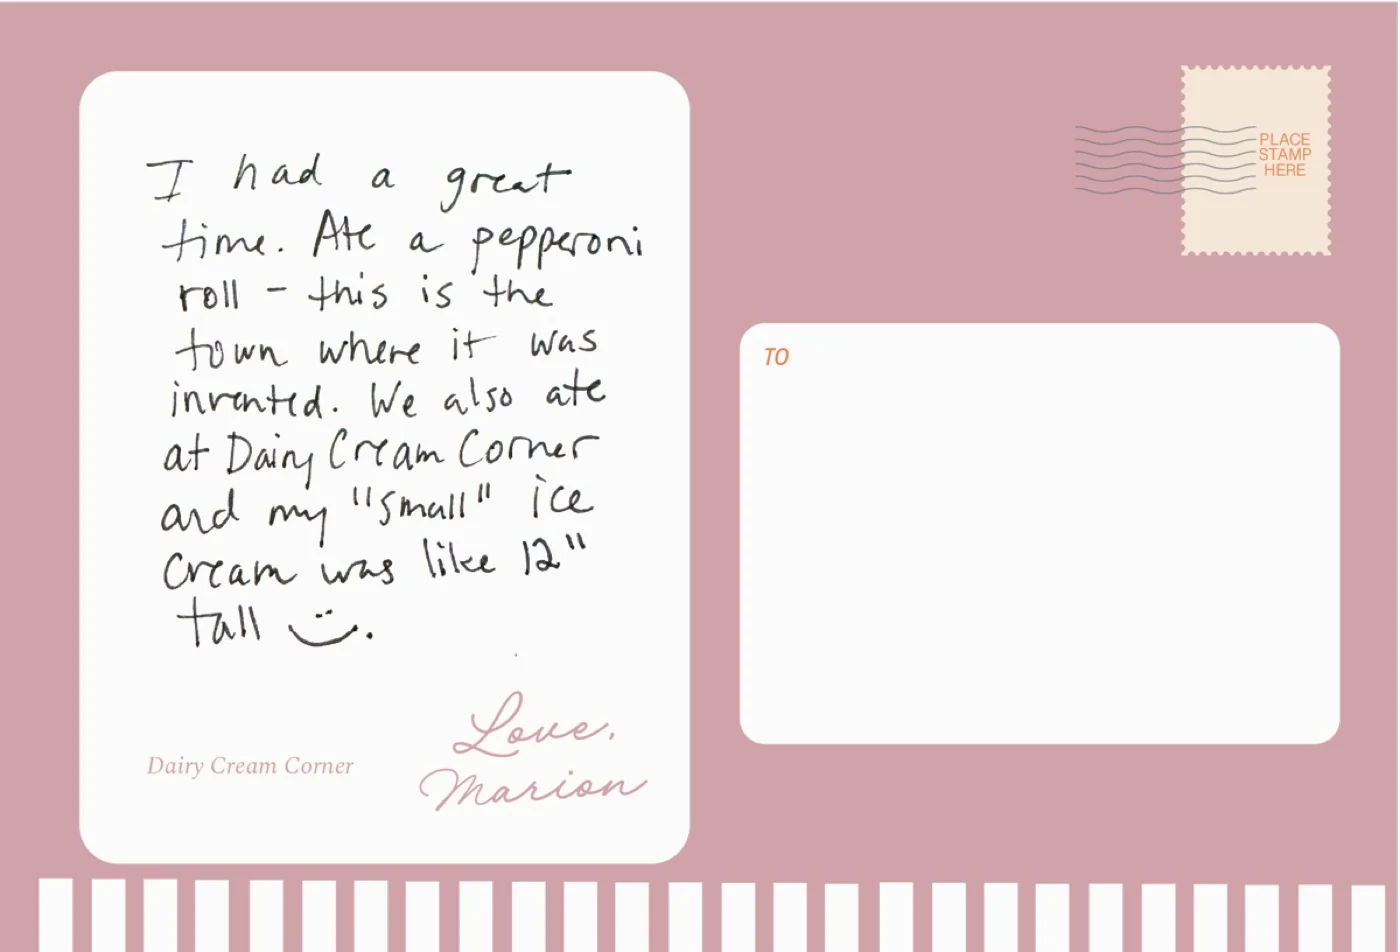 I had a great
time. Ate a pepperoni
roll - this is the
town where it was
invented. We also ate
at Dairy Cream Corner
and my "small" ice
cream was like 12"
tall
Dairy Cream Corner
Love,
Marion
PLACE
STAMP
HERE
TO